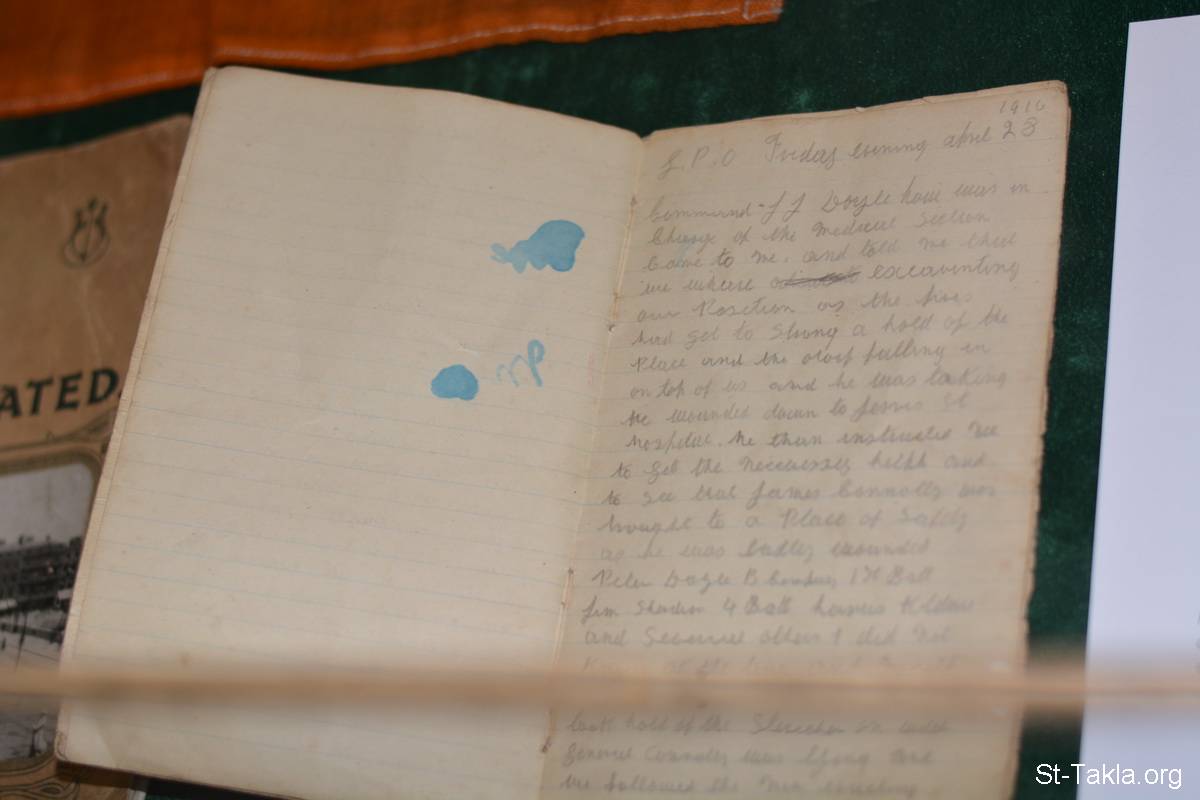 ATED.
1916
G.P.O Friday evening april 28
Command- J J Doyle how was in
Charge of the Medical Section
Came to me. and told me that
we where excavinting
our Position as the fires
had got to Strong a hold of the
Place and the roof falling in
on top of us and he was taking
the wounded down to Jervis St
hospital. he then instructed me
to get the neccessary helth and
to see that James Connolly was
brought to a Place of Safety
as he was badly wounded
Peter Doyle B Company 1st Batt
Jim Sheridan 4 Batt
and Several others I did not
took hold of the Strecher on
general Connolly was lying and
we followed the
St-Takla.org